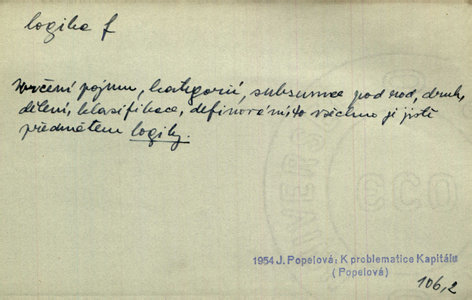 logika f
určení pojmu, kategorií, subsumce pod rod, druh,
dělení, klasifikace, definování, to všechno je jistě
předmětem logiky.
1954 J. Popelová: K problematice Kapitálu
(Popelová)
106,2